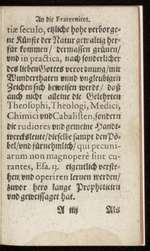 An die Frawenicht.
tiæ seculo, etzliche hohe verborge-
ne Künste der Natur gewaltig her-
für kommen / dermassen grünen/
und in practica, nach sonderlicher
deß lieben Gottes verordnung/mit
Wunderthaten unnd unglaubigen
Zeichen sich beweisen werde / daß
auch nicht alleine die Gelehrten
Theosophi, Theologi, Medici,
Chimici und Cabalisten, sondern
die rudiores und gemeine Handt-
wercksleute/dieselbe sampt den Pö-
bel/und fürnemblich/ qui pecuni-
arum non magnoperè sint cu-
rantes, Esa. 13. eigentlich verste-
hen und operiren lernen werden/
zuvor hero lange Prophticien
und geweissaget hat.
A iiij Als